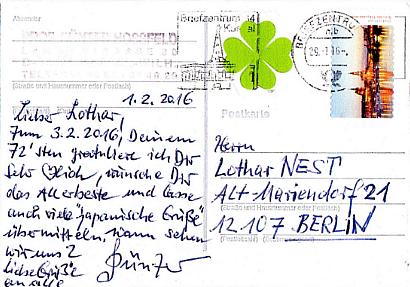 Briefzentrum 14
BRIEFZENTRUM
(Straße und Hausnummer oder Postfach)
1.2.2016
Postkarte
Lieber Lothar,
zum 3.2.2016, Deinem
72'sten gratuliere ich Dir
sehr herzlich, wünsche Dir
das Allerbeste und lasse
auch viele "japanische Grüße"
übermitteln. Wann sehen
wir uns?
Liebe Grüße
an alle
Günter
Herrn
Lothar NEST
Alt-Mariendorf 21
(Straße und Hausnummer oder Postfach)
12107 BERLIN